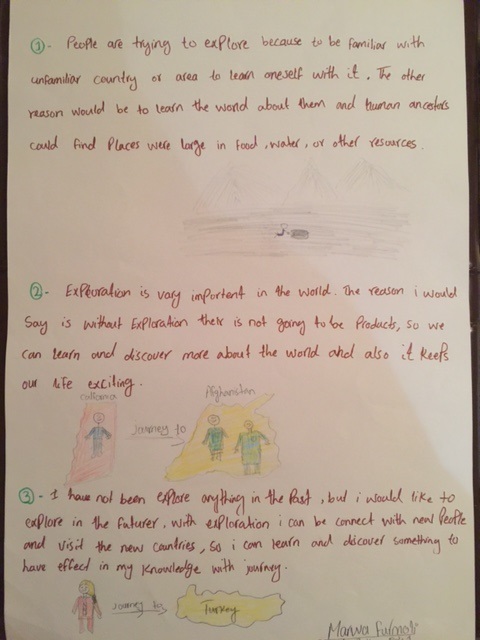 1 - People are trying to explore because to be familiar with
unfamiliar country or area to learn oneself with it. The other
reason would be to learn the world about them and Human ancestors
could find Places were large in food, water, or other resources.
2 - Exploration is vary importent in the world. The reason i would
Say is without Exploration their is not going to be Products, so we
can learn and discover more about the world and also it keeps
our life exciting.
Afghanistan
Journey to
3 - I have not been explore anything in the Past, but i would like to
explore in the futurer, with exploration i can be connect with new People
and visit the new countries, so i can learn and discover something to
have effect in my knowledge with journey.
journey to
Turkey
Marwa